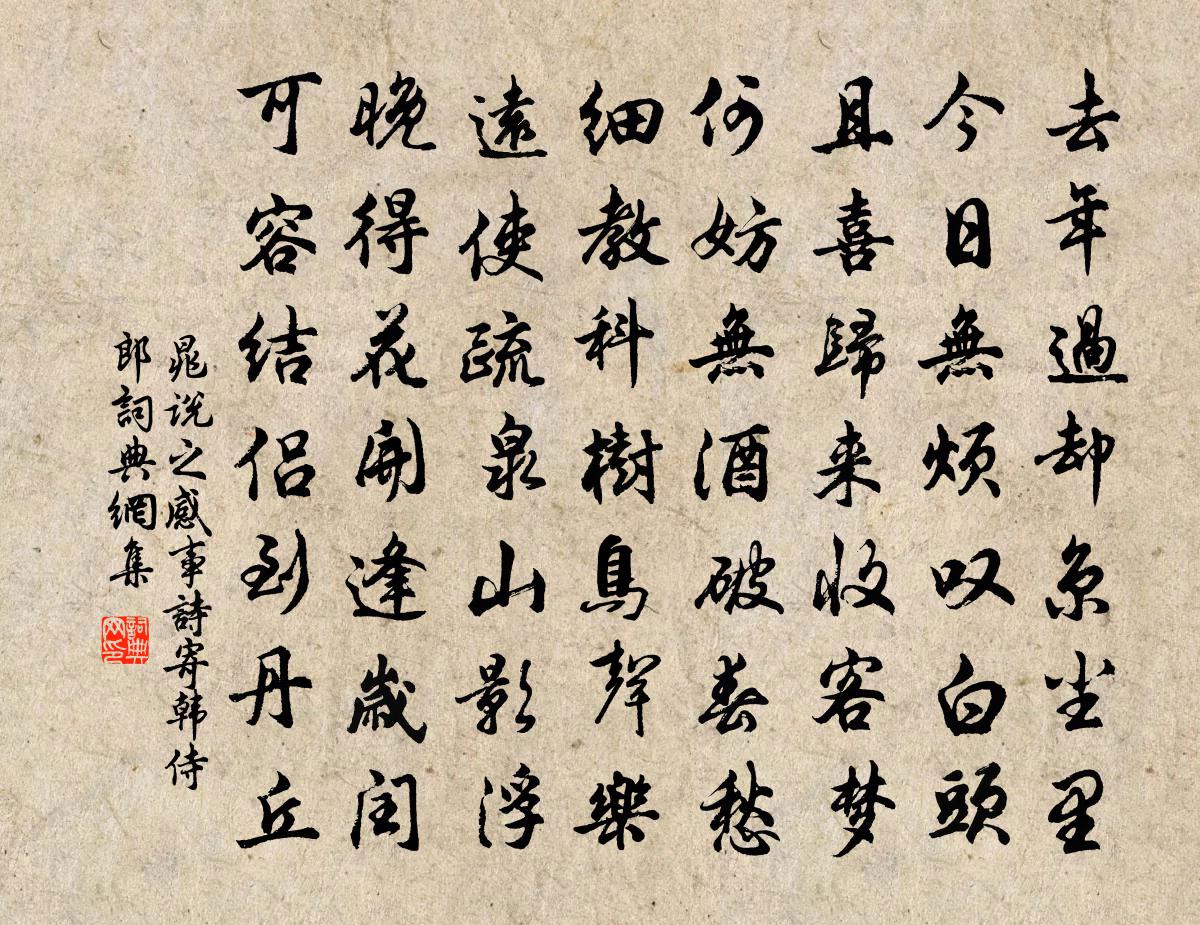 去年過却京尘里
今日無烦叹白頭
且喜歸来收客梦
何妨無酒破春愁
细教科樹鳥聲樂
遠使疏泉山影浮
晚得花開逢歲闰
可容结侣到丹丘
晁说之感事詩寄韩侍
郎詞典網集
詞典
网印